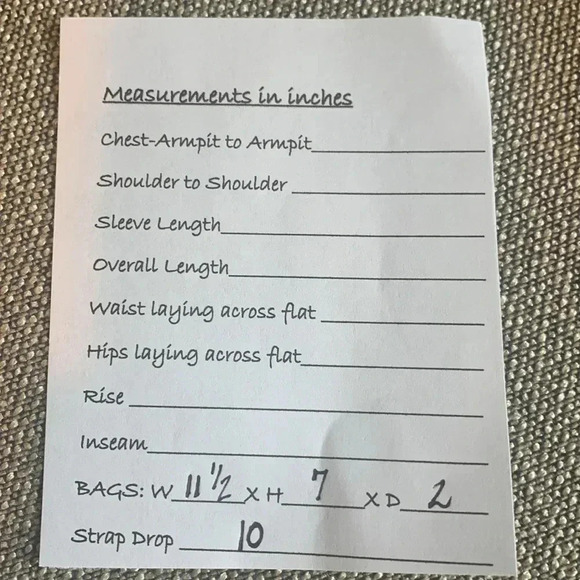 Measurements in inches
Chest-Armpit to Armpit
Shoulder to Shoulder
Sleeve Length
Overall Length
Waist laying across flat
Hips laying across flat
Rise
Inseam
BAGS: W 11 1/2 X H 7 X D 2
Strap Drop 10